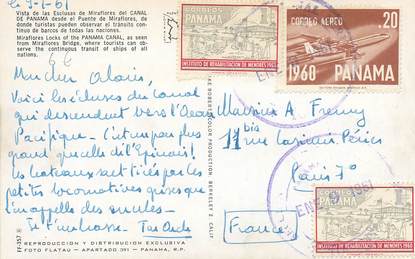 le 3-1-61
Vista de las Esclusas de Miraflores del CANAL
DE PANAMA desde el Puente de Miraflores, de
donde turistas pueden observar el tránsito con-
tinuo de barcos de todas las naciones.
Miraflores Locks of the PANAMA CANAL, as seen
from Miraflores Bridge, where tourists can ob-
serve the continuous transit of ships of all
nations.
Mon cher
Voici les écluses du canal
qui descendent vers l'Océan
Pacifique - C'est un peu plus
grand que celle d'Epinai!
les bateaux sont tirés par les
petites locomotives qu'on
appelle des mules -
Je t'embrasse. Ton Oncle
FF-357
REPRODUCCION Y DISTRIBUCION EXCLUSIVA
FOTO FLATAU - APARTADO 391 - PANAMA, R.P.
CORREO AEREO
20
1960 PANAMA
CORREOS
PANAMA
1
INSTITUTO DE REHABILITACION DE MENORES 1963
Monsieur A.
11 bis
rue Casimir Périer
Paris 7e
France
CORREOS
PANAMA
1
INSTITUTO DE REHABILITACION DE MENORES